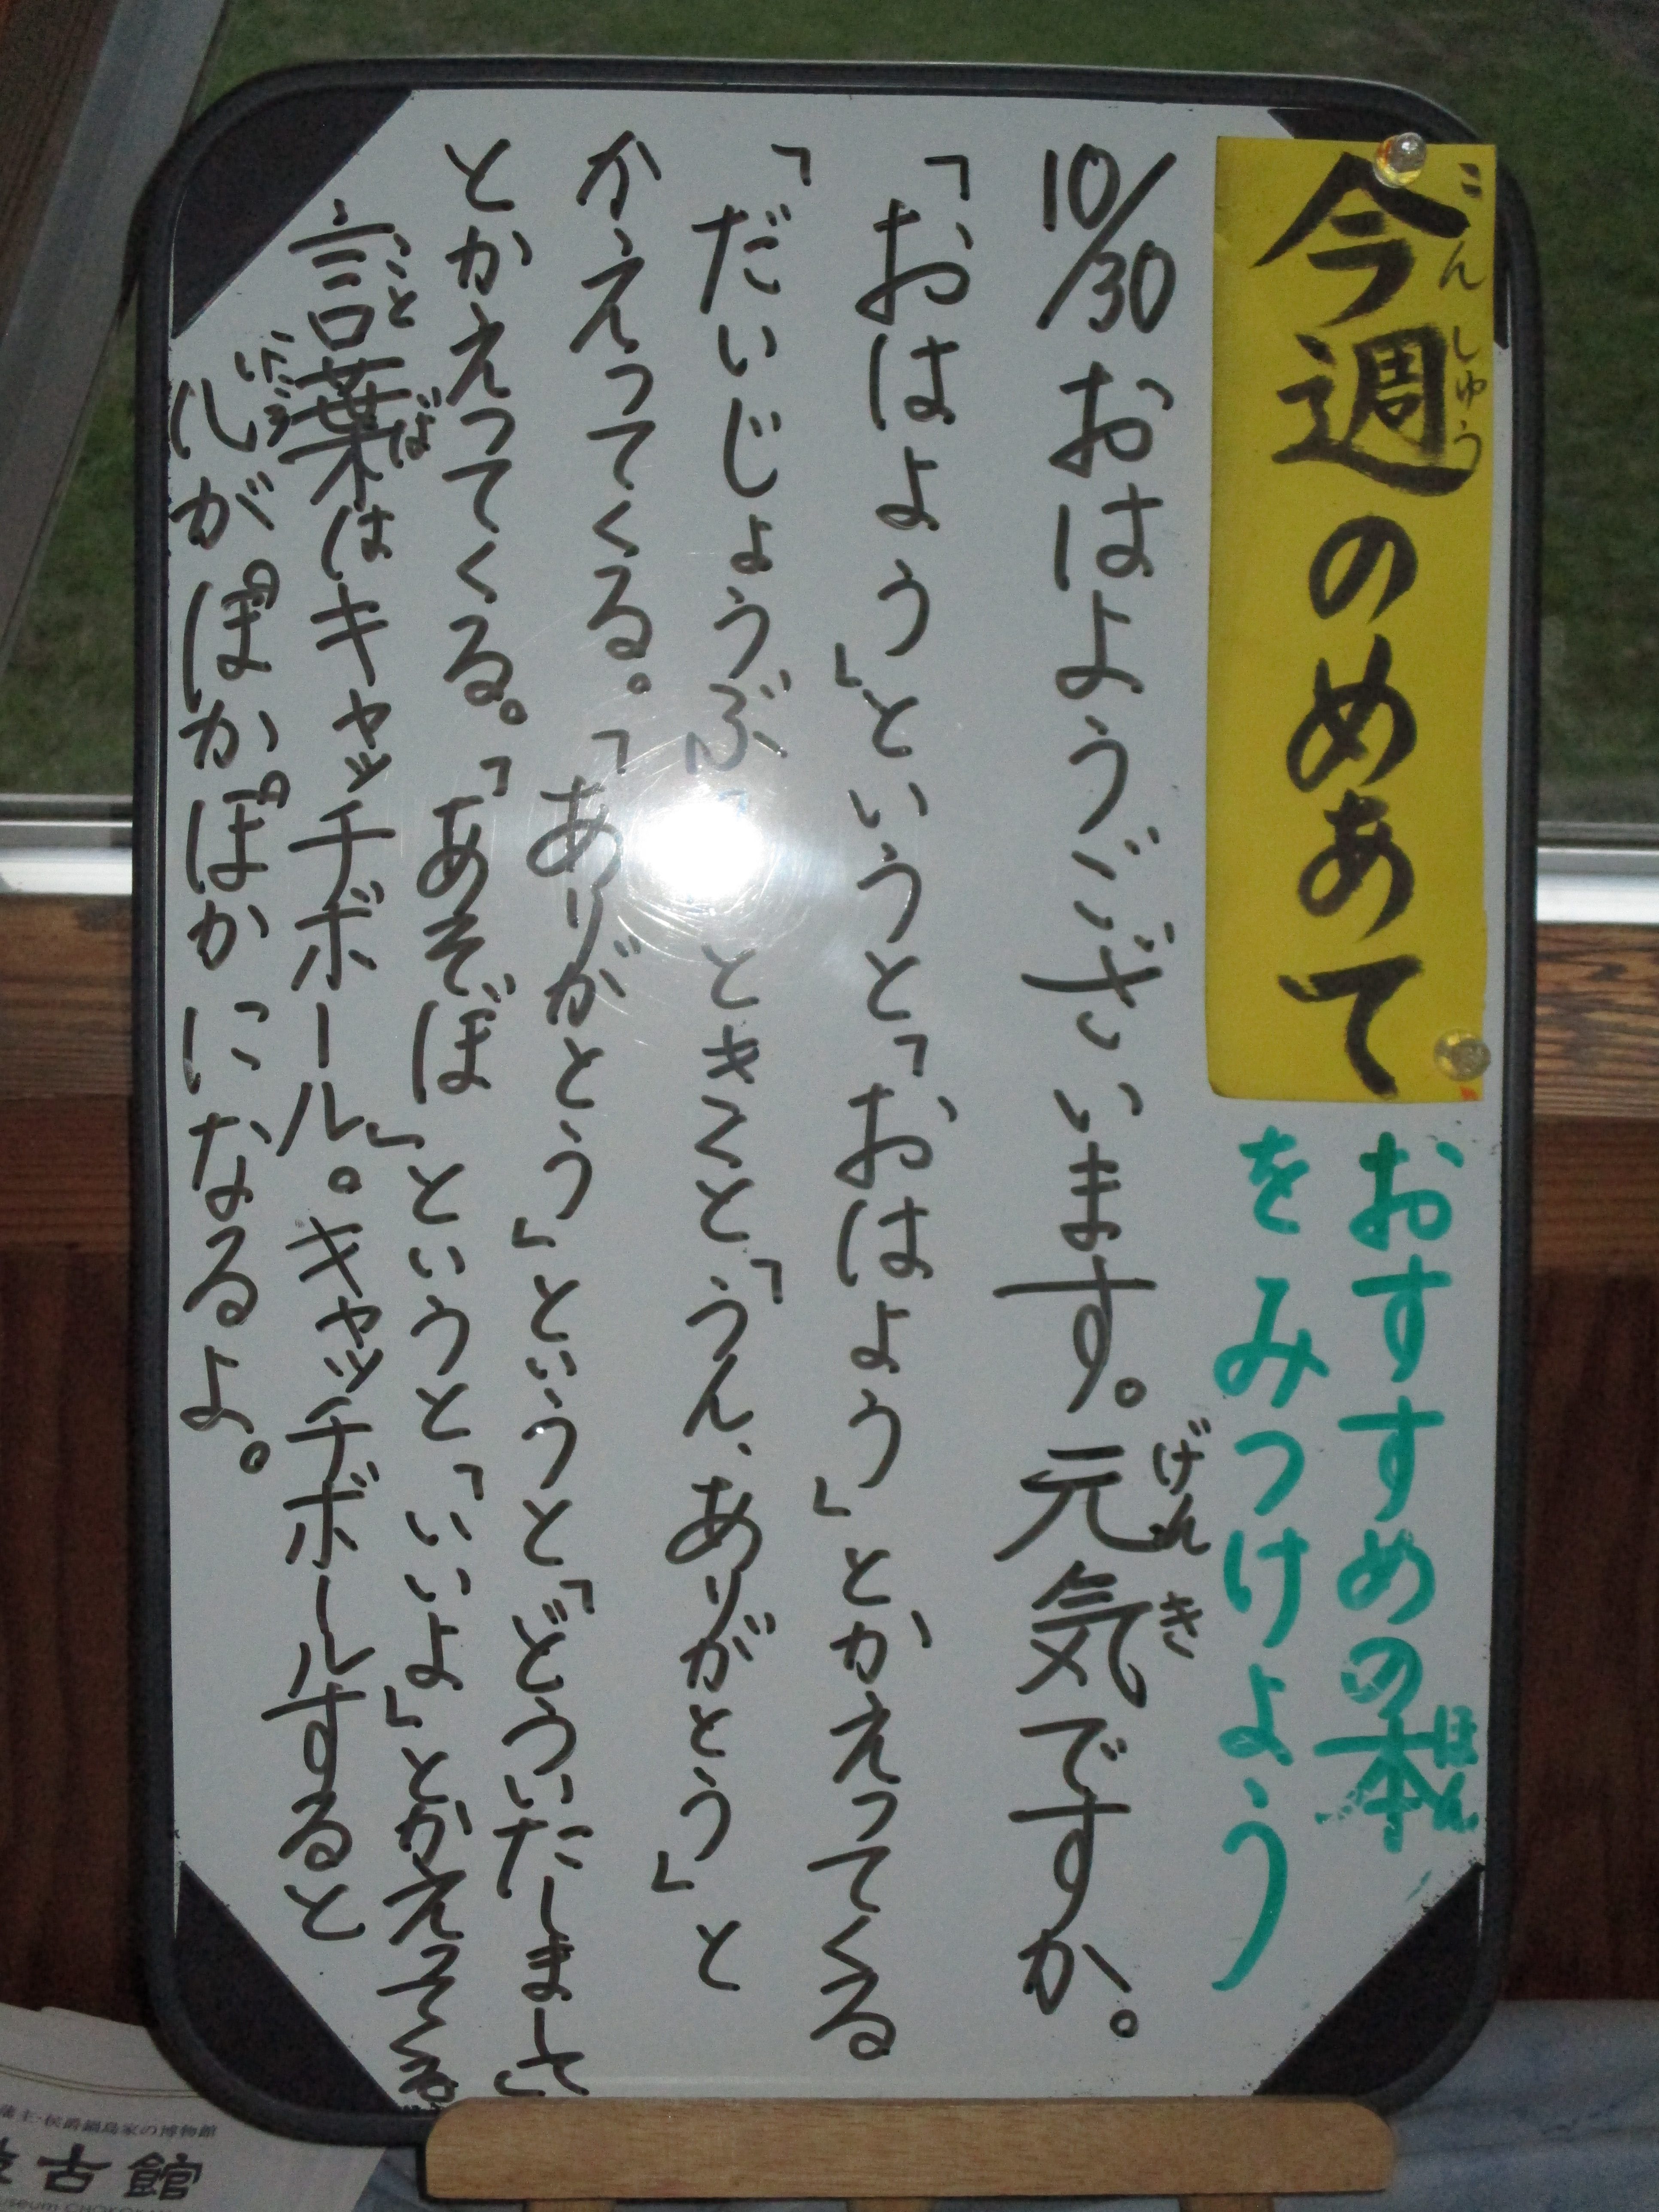 今週のめあて
こんしゅう
おすすめの本
ほん
をみつけよう
10/30 おはようございます。元気ですか。
げんき
「おはよう」というと「おはよう」とかえってくる
「だいじょうぶ ときくと、「うん、ありがとう」と
かえってくる。「ありがとう」というと「どういたしまして」
とかえってくる。「あそぼ」というと、「いいよ」とかえってくる。
言葉はキャッチボール。キャッチボールすると
ことば
心がぽかぽかになるよ。
こころ
侯爵鍋島家の博物館
古館